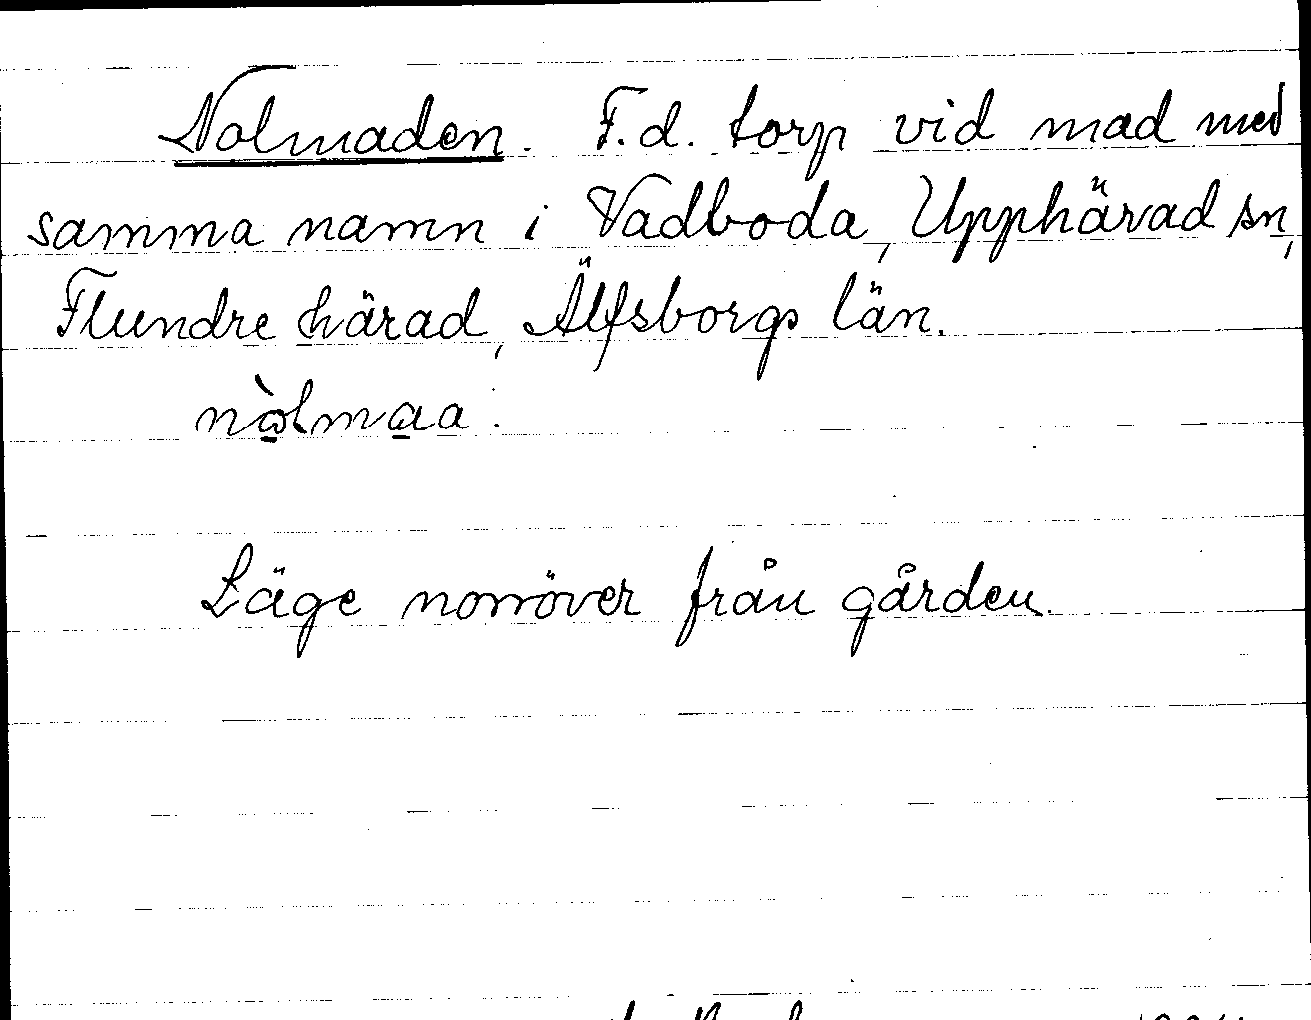 Nolmaden. F.d. torp vid mad med
samma namn i Vadboda, Upphärad sn,
Flundre härad, Älfsborgs län.
nòlmaa.
Läge norröver från gården.